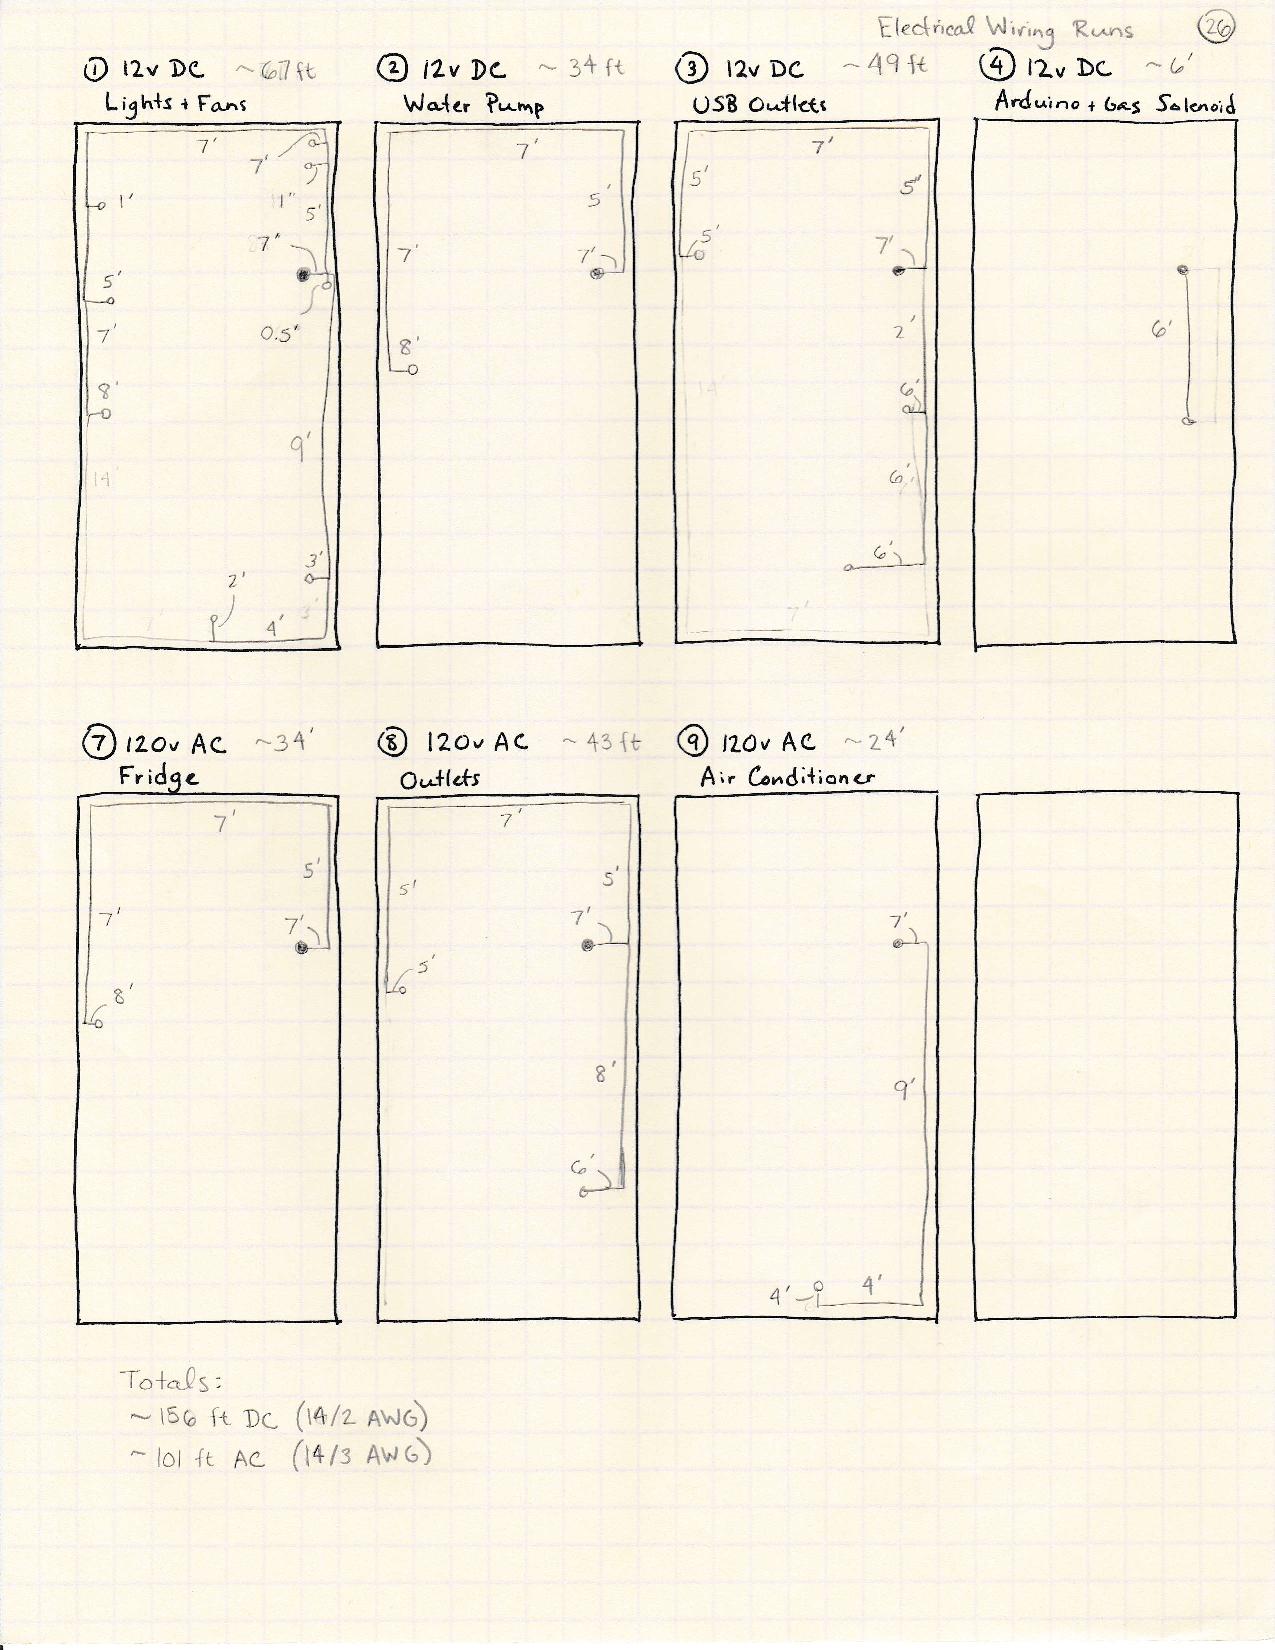 Electrical Wiring Runs 26
① 12v DC ~67ft
Lights + Fans
7'
7'
1'
11"
5'
7"
5'
0.5"
7'
8'
9'
14'
3'
2'
3'
4'
② 12v DC ~ 34ft
Water Pump
7'
5'
7'
7'
8'
③ 12v DC ~49ft
USB Outlets
7'
5'
5'
5'
7'
2'
14'
6'
6'
6'
7'
④ 12v DC ~6'
Arduino + Gas Solenoid
6'
⑦ 120v AC ~34'
Fridge
7'
5'
7'
7'
8'
⑧ 120v AC ~ 43ft
Outlets
7'
5'
5'
7'
5'
8'
6'
⑨ 120v AC ~24'
Air Conditioner
7'
9'
4'
4'
Totals:
~156 ft DC (14/2 AWG)
~101 ft AC (14/3 AWG)